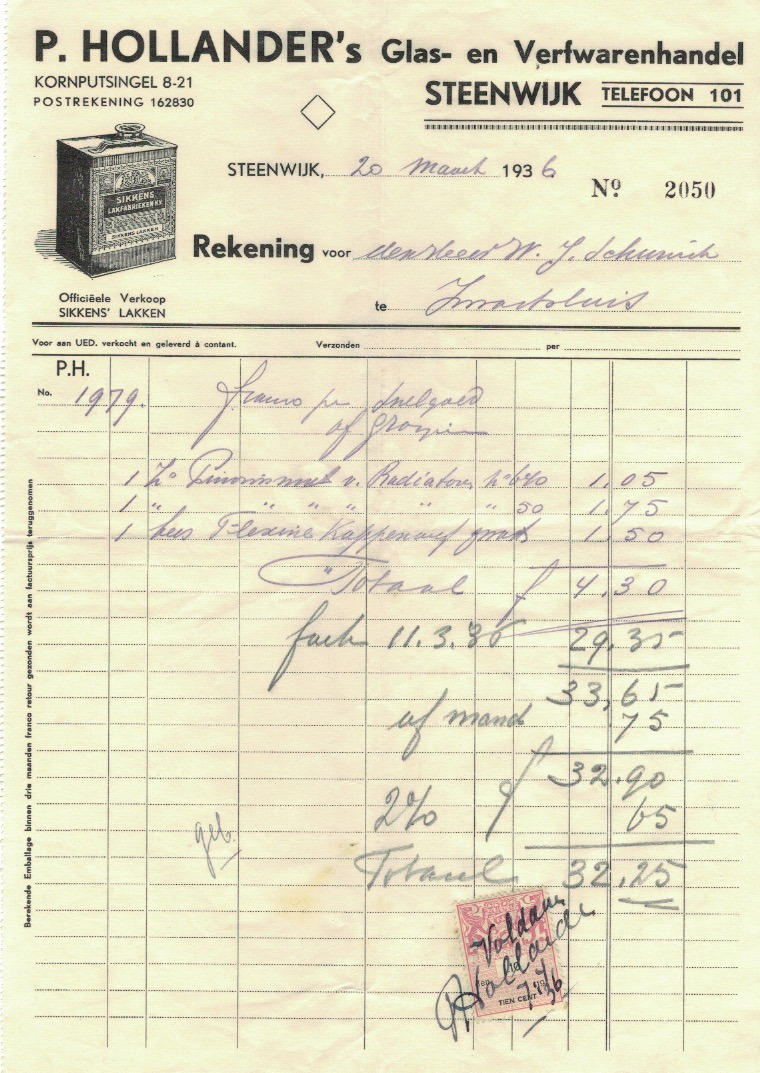 P. HOLLANDER's Glas- en Verfwarenhandel
KORNPUTSINGEL 8-21
POSTREKENING 162830
STEENWIJK TELEFOON 101
SIKKENS
LAKFABRIEKEN N.V.
SIKKENS LAKKEN
STEENWIJK, 20 Maart 1936
Nº 2050
Rekening voor den Heer W. J.
te Zwartsluis
Officiëele Verkoop
SIKKENS' LAKKEN
Voor aan UED. verkocht en geleverd à contant. Verzonden per
P.H.
No. 1979. franco per snelgoed
af
1 v. Radiator 1.05
1 " " " " " " 50 1.75
1 bus Flexine 1.50
Totaal f 4.30
fact 11.3.36 29.35
33,65
af mand 75
f 32.90
2% 65
Totaal 32.25
geb.
Berekende Emballage binnen drie maanden franco retour gezonden wordt aan factuursprijs teruggenomen
Voldaan
P. Hollander
7.4.36
TIEN CENT